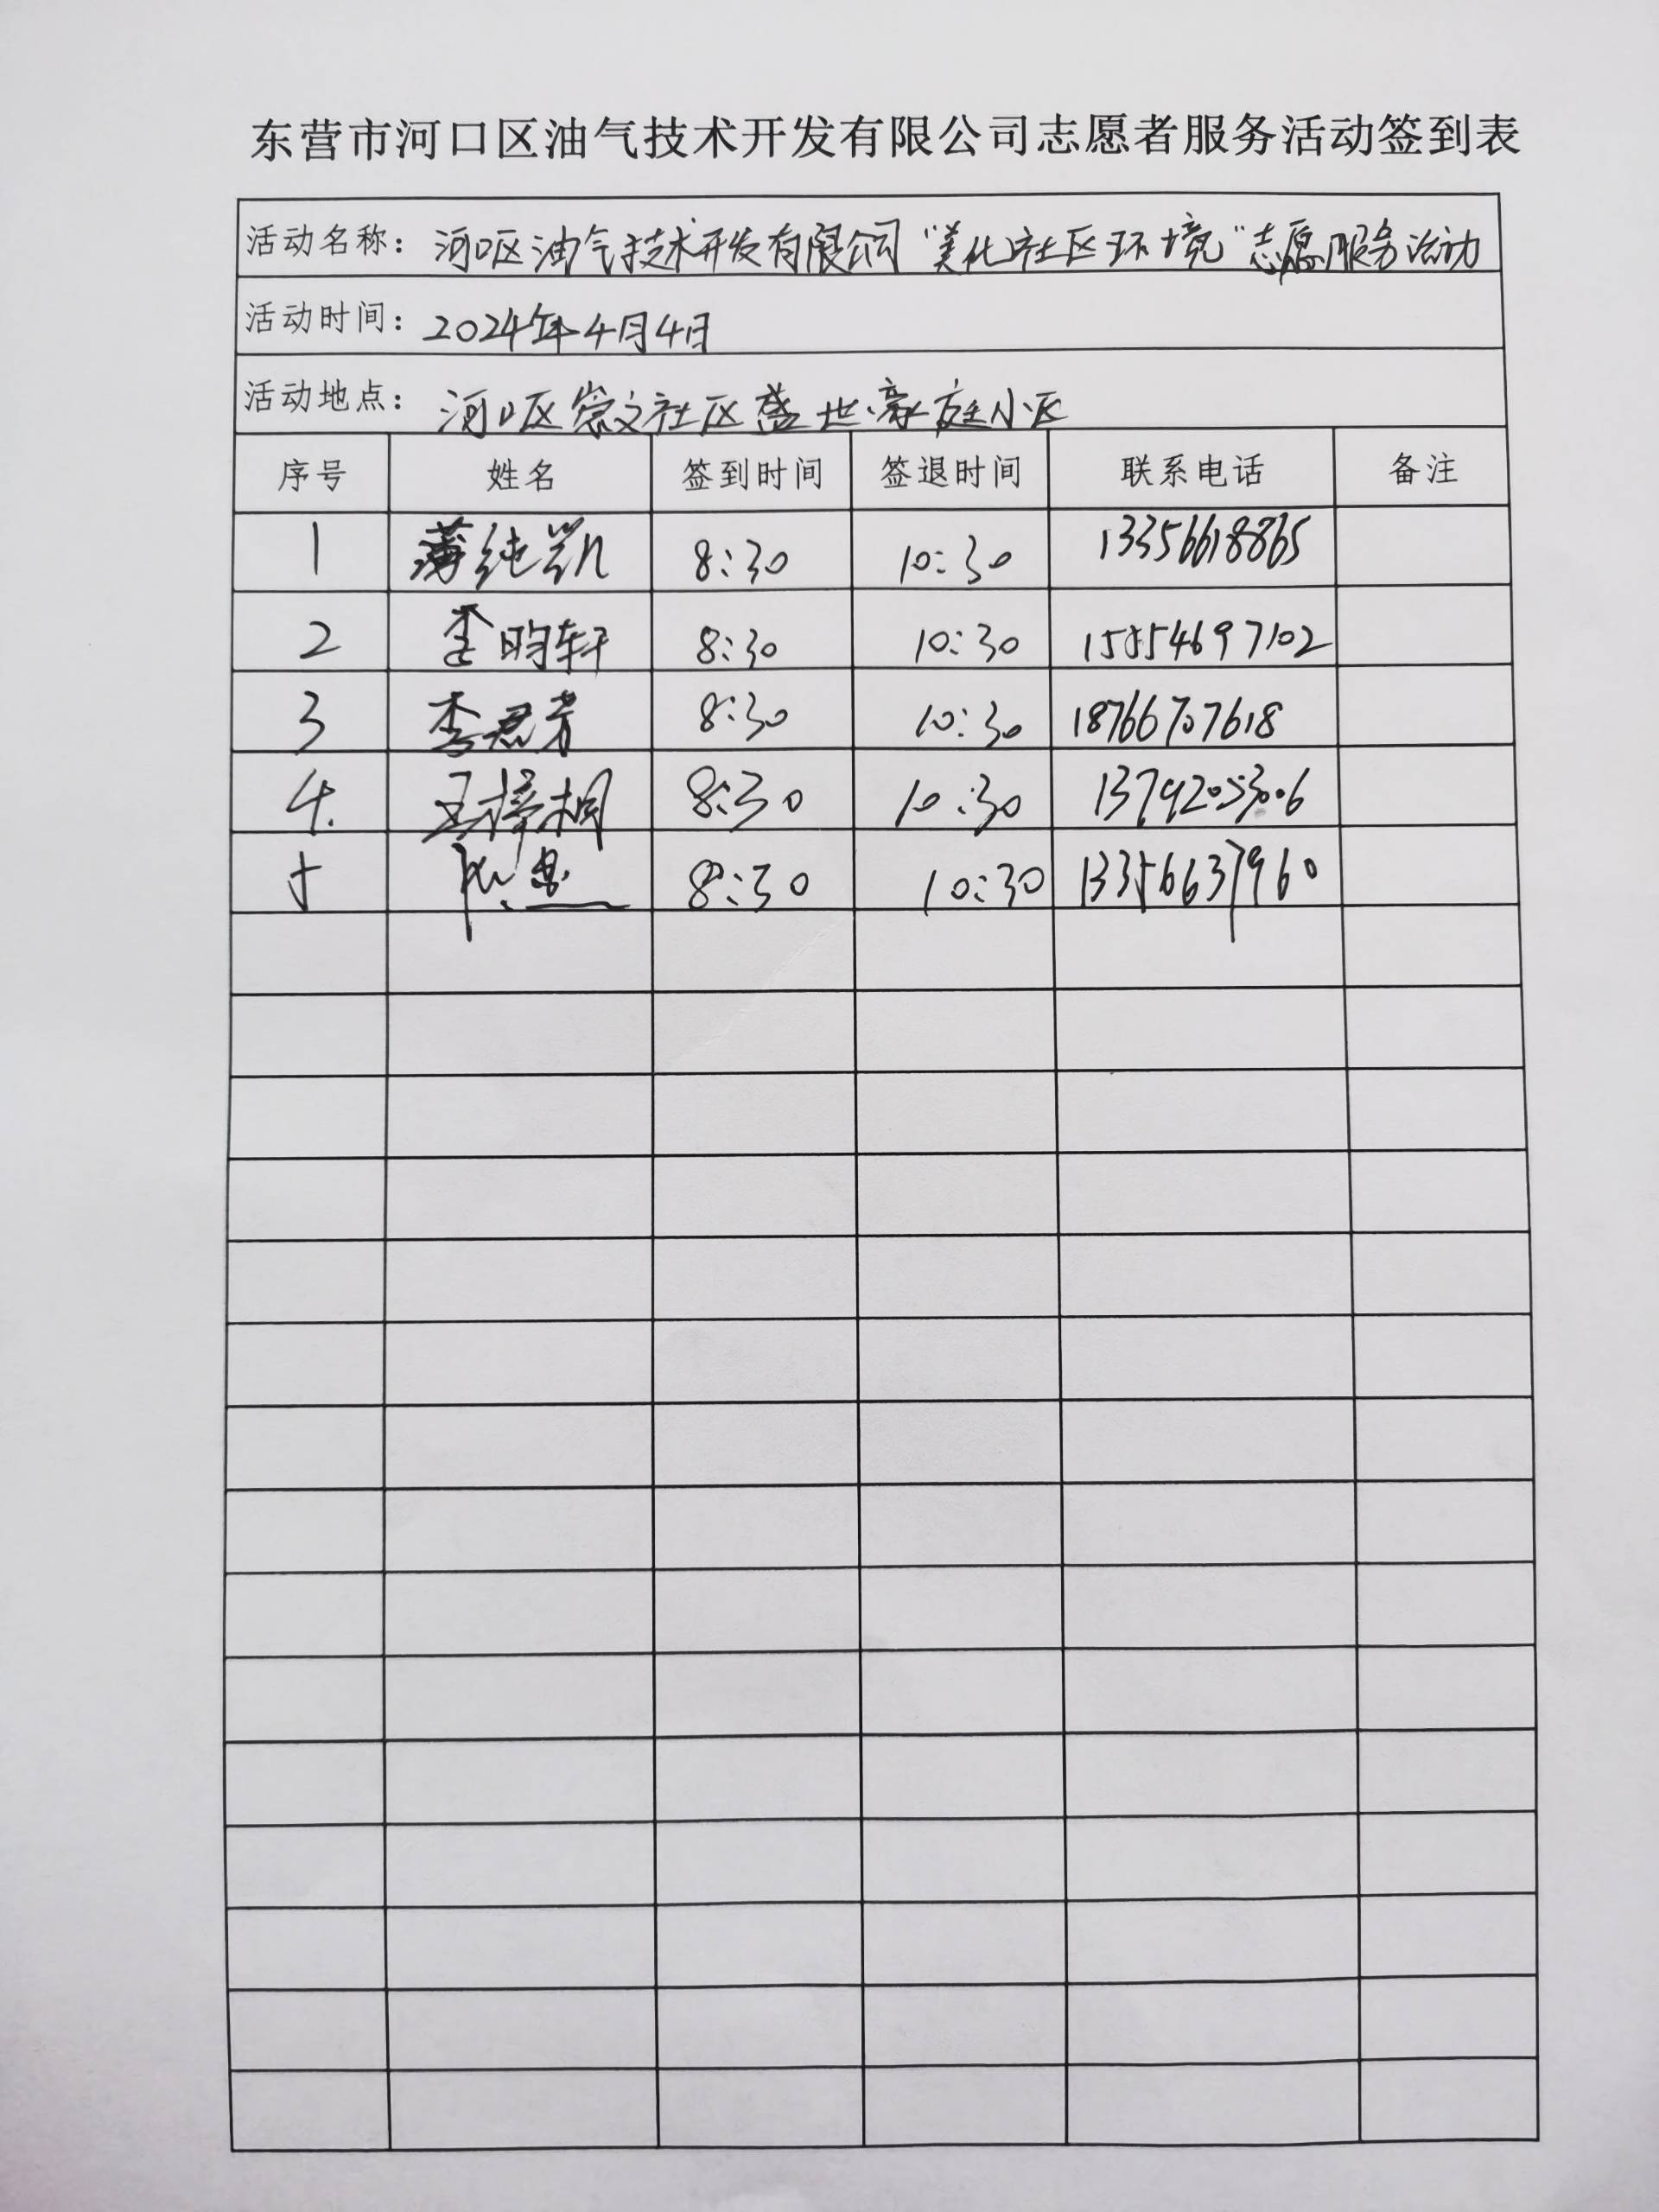 东营市河口区油气技术开发有限公司志愿者服务活动签到表
活动名称：河口区油气技术开发有限公司“美化社区环境”志愿服务活动
活动时间：2024年4月4日
活动地点：河口区崇文社区盛世豪庭小区
序号 姓名 签到时间 签退时间 联系电话 备注
1 薄纯凯 8:30 10:30 13356618865
2 李昀轩 8:30 10:30 15854697102
3 李君芳 8:30 10:30 18766707618
4. 王梓桐 8:30 10:30 13792053006
5 8:30 10:30 13356637960